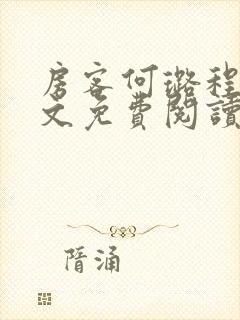 房客何璐程
文免費閱讀
隝涌